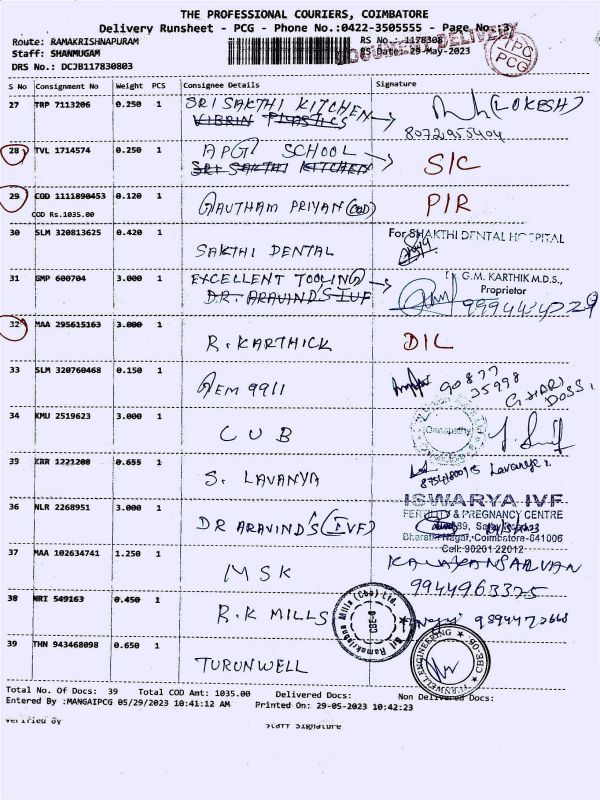 THE PROFESSIONAL COURIERS, COIMBATORE
Delivery Runsheet - PCG - Phone No.:0422-3505555 - Page No.:3
Route: RAMAKRISHNAPURAM
Staff: SHANMUGAM
DRS No.: DCJB117830803
RS No.: 1178308
RS Date: 29-May-2023
DOCUMENT DELIVERY
TPC
PCG
S No Consignment No Weight PCS Consignee Details Signature
27 TRP 7113206 0.250 1 SRI SAKTHI KITCHEN
VIBRIN PLASTICS
(LOKESH)
8072955404
28 TVL 1714574 0.250 1 APG SCHOOL S/C
SRI SAKTHI KITCHEN
29 COD 1111890453 0.120 1 GAUTHAM PRIYAN (COD) P/R
COD Rs.1035.00
30 SLM 320813625 0.420 1 SAKTHI DENTAL
For SHAKTHI DENTAL HOSPITAL
31 GMP 600704 3.000 1 EXCELLENT TOOLING
DR. ARAVIND'S IVF
G.M. KARTHIK M.D.S.,
Proprietor
32 MAA 295615163 3.000 1 R. KARTHICK D/L
33 SLM 320760468 0.150 1 GEM 9911
90877
35998
34 KMU 2519623 3.000 1 CUB
Ganapathy
35 KRR 1221208 0.655 1 S. LAVANYA
Lavanya
36 NLR 2268951 3.000 1 DR ARAVIND'S (IVF)
ISWARYA IVF
FERTILITY & PREGNANCY CENTRE
Bharathi Nagar, Coimbatore-641006
Cell: 90201 22012
37 MAA 102634741 1.250 1 MSK
9944963325
38 NRI 549163 0.450 1 R.K MILLS
Sri Ramakrishna Mills (Cbe) Ltd.
CBE-6
39 THN 943468098 0.650 1 TURUNWELL
TURNWELL ENGINEERING
CBE-06
Total No. Of Docs: 39 Total COD Amt: 1035.00 Delivered Docs: Non Delivered Docs:
Entered By :MANGAIPCG 05/29/2023 10:41:12 AM Printed On: 29-05-2023 10:42:23
Verified By Staff Signature